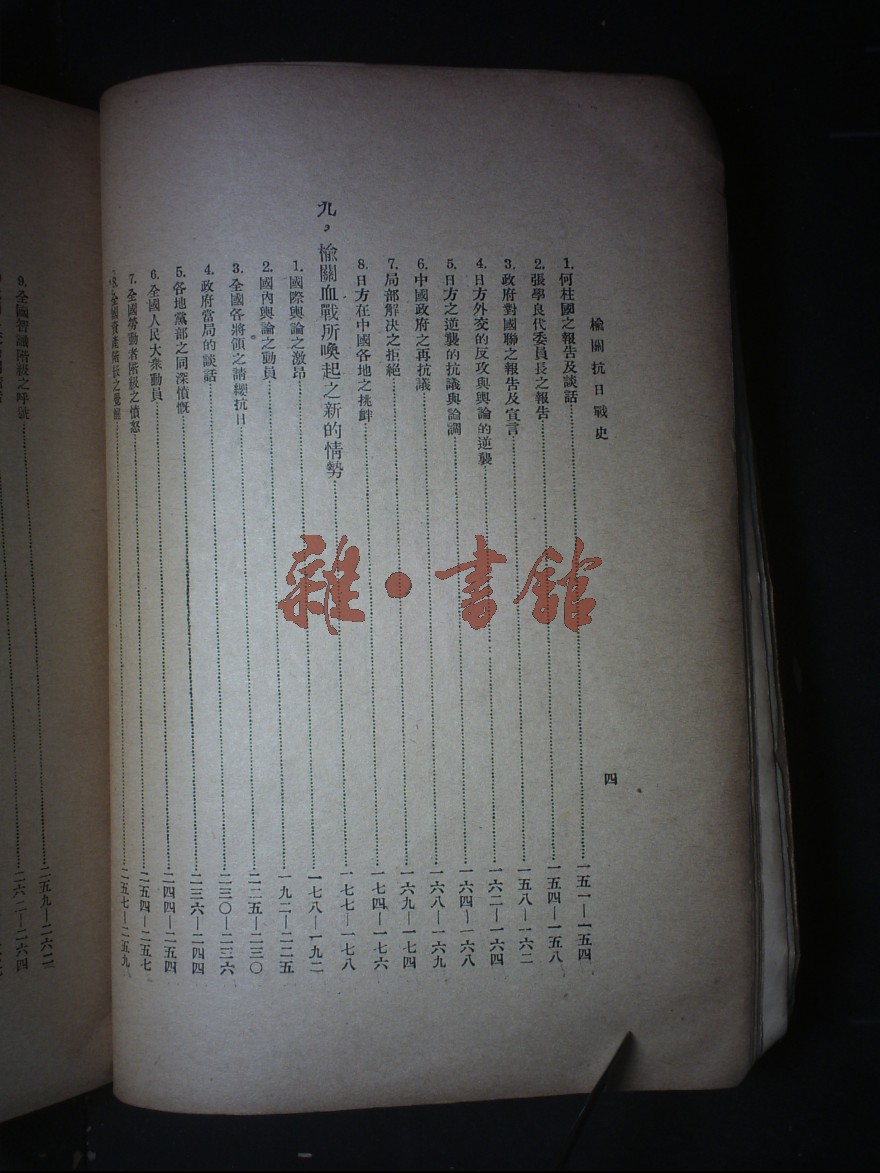 榆關抗日戰史 四
1. 何柱國之報告及談話……一五一—一五四
2. 張學良代委員長之報告……一五四—一五八
3. 政府對國聯之報告及宣言……一五八—一六二
4. 日方外交的反攻與輿論的逆襲……一六二—一六四
5. 日方之逆襲的抗議與論調……一六四—一六八
6. 中國政府之再抗議……一六八—一六九
7. 局部解決之拒絕……一六九—一七四
8. 日方在中國各地之挑衅……一七四—一七六
九，榆關血戰所喚起之新的情勢……一七七—一七八
1. 國際輿論之激昂……一七八—一九二
2. 國內輿論之動員……一九二—二二五
3. 全國各將領之請纓抗日……二二五—二三〇
4. 政府當局的談話……二三〇—二三六
5. 各地黨部之同深憤慨……二三六—二四四
6. 全國人民大衆動員……二四四—二五四
7. 全國勞動者階級之憤怒……二五四—二五七
8. 全國資產階級之覺醒……二五七—二五九
9. 全國智識階級之呼號……二五九—二六二
二六二—二六四
雜·書館